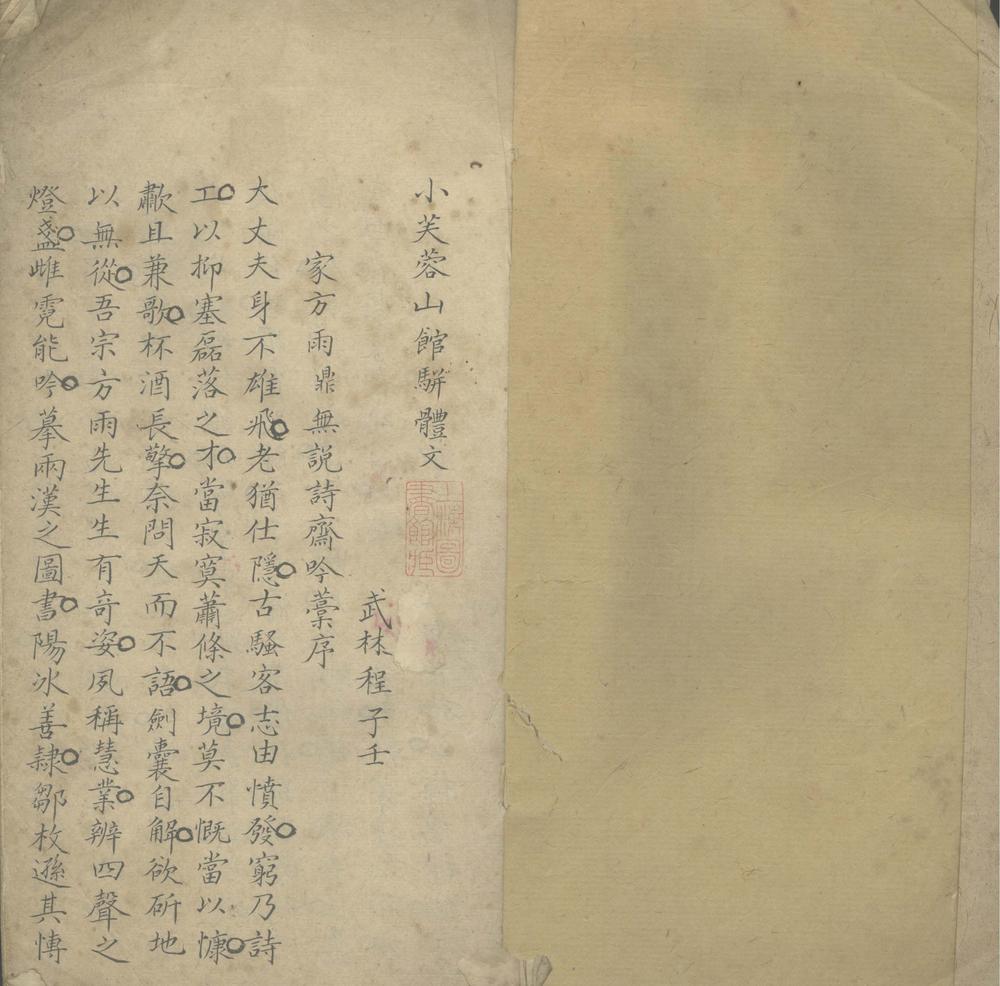 小芙蓉山館駢體文
武林程子壬
家方雨鼎無說詩齋吟藁序
大丈夫身不雄飛○老猶仕隱○古騷客志由憤發○窮乃詩
工○以抑塞磊落之才○當寂寞蕭條之境○莫不慨當以慷○
歗且兼歌○杯酒長擎○奈問天而不語○劍囊自解○欲斫地
以無從○吾宗方雨先生生有奇姿○夙稱慧業○辨四聲之
燈盞○雌霓能吟○摹兩漢之圖書○陽冰善隸○鄒枚遜其慱